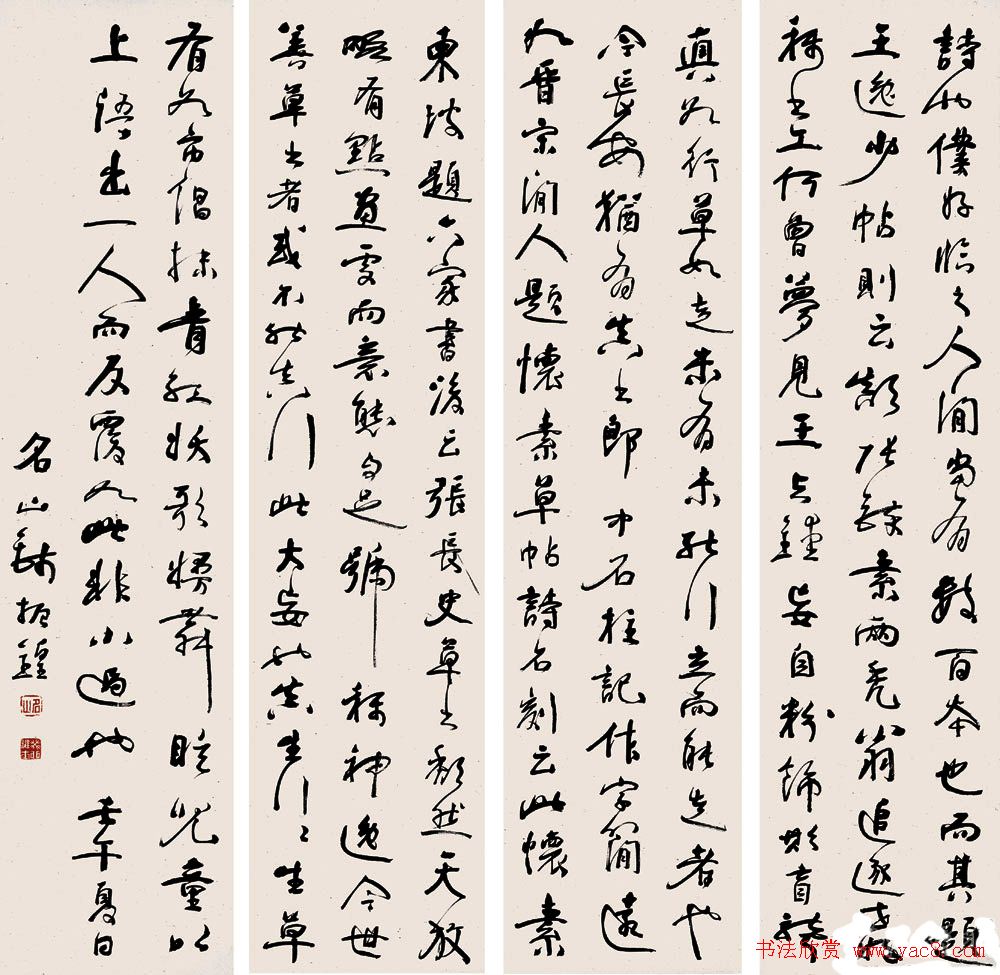 詩也僕好臨之人間當有數百本也而其題
王逸少帖則云顛張醉素兩禿翁追逐世
稱書工何曾夢見王与鍾妄自粉飾欺盲聾
真如行草如走未有未能行立而能走者也
今長安猶有其書郎中石柱記作字簡遠
如晉宋間人題懷素草帖詩名刻云此懷素
東坡題六家書後云張長史草書頹然天放
略有點畫處而意態自足號稱神逸今世
善草書者或不能真行此大妄也真生行行生草
有如市倡抹青紅妖歌嫚舞眩兒童以
上出一人而反覆如此非小過也 壬午夏日
名山錢振鍠
书法欣赏 www.yac8.com